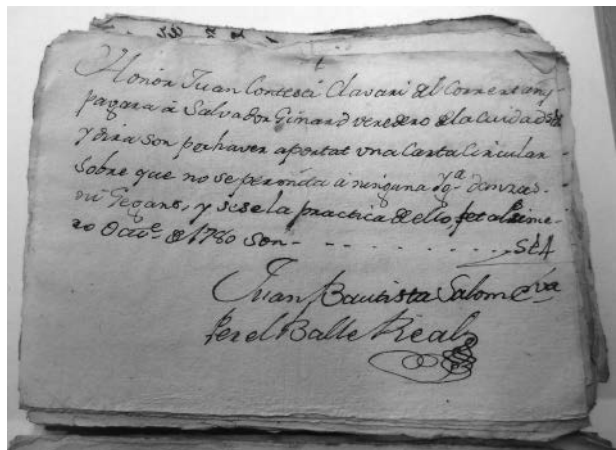 Honor Juan Contestí Clavari del Corrent any
pagara á Salvador Ginard veredero de la Cuidad
y dira son per haver aportat vna Carta Circular
Sobre que no se permita á ninguna danzas
ni Gegans, y se practica de ello fet als
de 1780 son
Juan Bautista Salom
Per el Balle Real